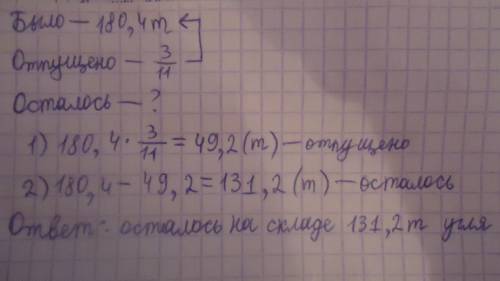 Было – 180,4т
Отпущено – 3/11
Осталось – ?
1) 180,4 · 3/11 = 49,2 (т) – отпущено
2) 180,4 – 49,2 = 131,2 (т) – осталось
Ответ: осталось на складе 131,2т угля